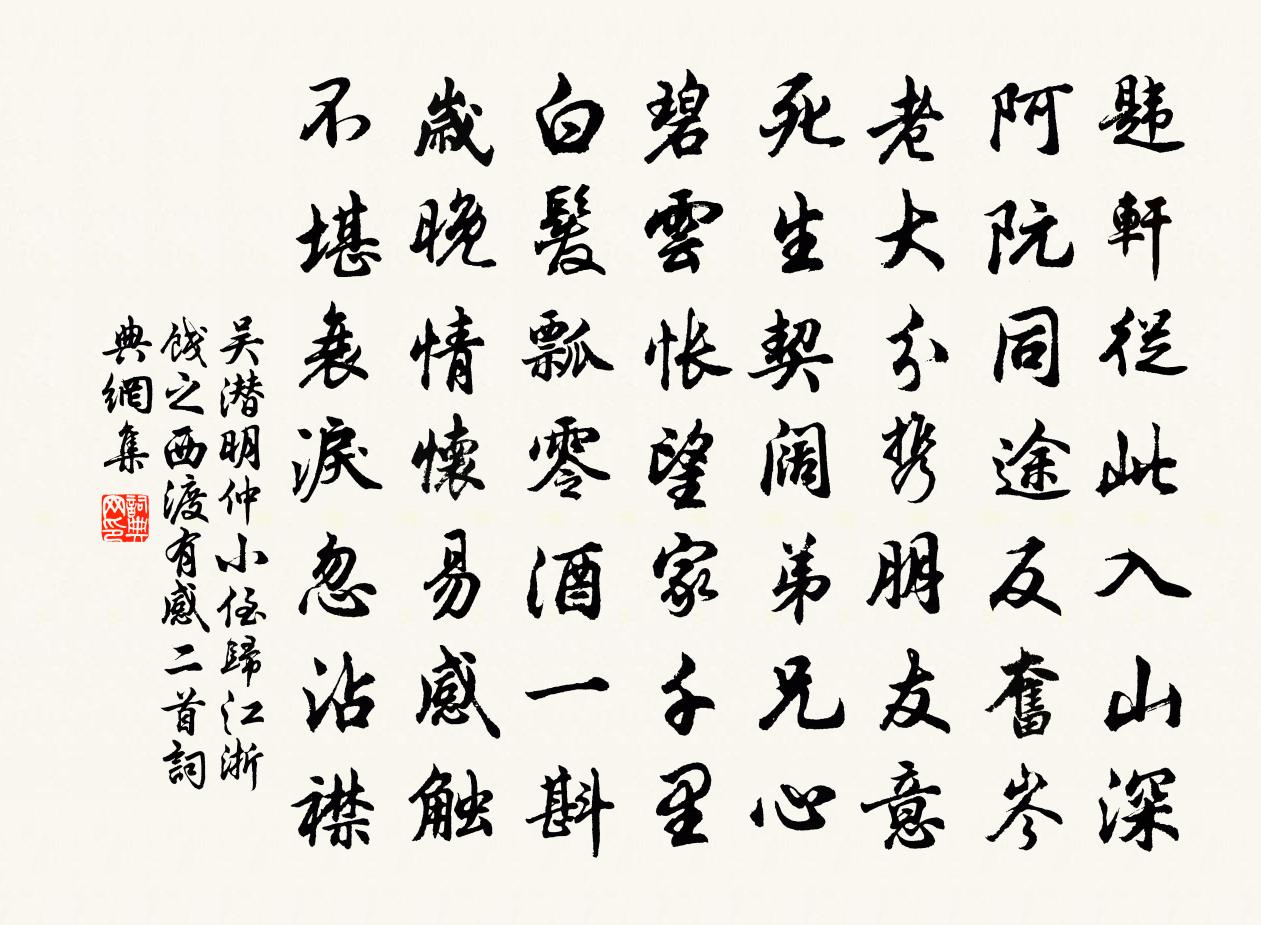 韙軒從此入山深
阿阮同途反奮岑
老大分携朋友意
死生契闊弟兄心
碧雲悵望家千里
白髮瓢零酒一斟
歲晚情懷易感触
不堪衰淚忽沾襟
吴潜明仲小侄歸江浙
餞之西渡有感二首詞
典網集
詞典网印